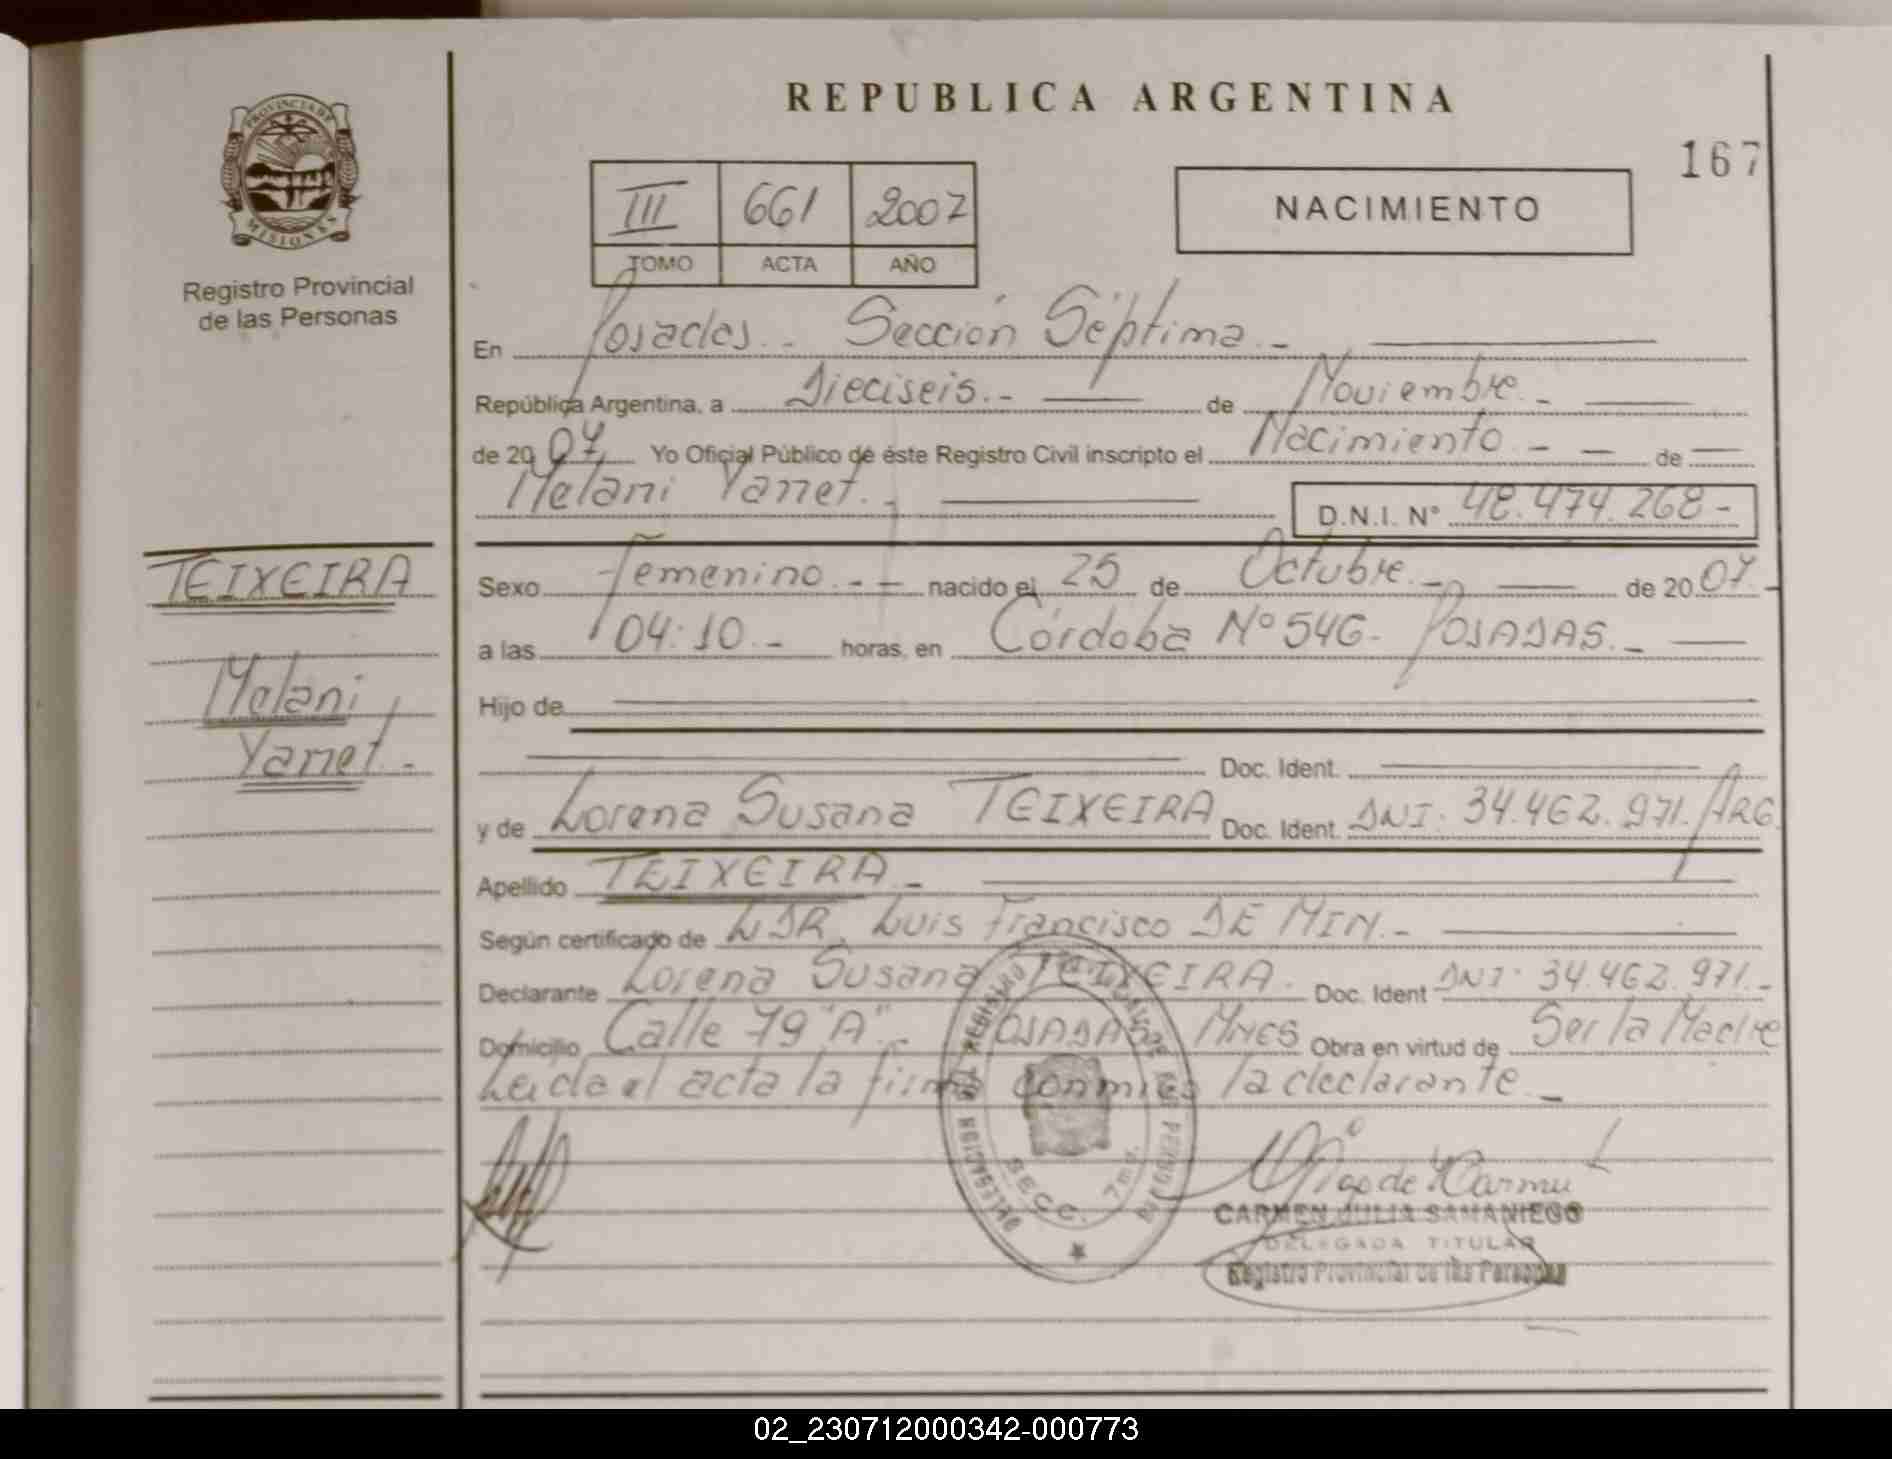 REPUBLICA ARGENTINA
167
PROVINCIA DE
MISIONES
Registro Provincial
de las Personas
III 661 2007
TOMO ACTA AÑO
NACIMIENTO
En Posadas.- Sección Séptima.-
República Argentina, a Dieciseis.- de Noviembre.-
de 2007 Yo Oficial Público de éste Registro Civil inscripto el Nacimiento.- de
Melani Yanet.- D.N.I. N° 48.474.268-
TEIXEIRA
Melani
Yanet.-
Sexo Femenino.- nacido el 25 de Octubre.- de 2007.-
a las 04:10.- horas, en Córdoba N° 546- POSADAS.-
Hijo de
Doc. Ident.
y de Lorena Susana TEIXEIRA Doc. Ident. DNI: 34.462.971. ARG.
Apellido TEIXEIRA.-
Según certificado de Luis Francisco DE MIN.-
Declarante Lorena Susana TEIXEIRA. Doc. Ident DNI: 34.462.971.-
Domicilio Calle 79 "A".- POSADAS MNES Obra en virtud de Ser la Madre
Leida el acta la firma conmigo la declarante.-
DELEGACION DEL REGISTRO
SECC. 7ma.
CARMEN JULIA SAMANIEGO
DELEGADA TITULAR
Registro Provincial de las Personas
02_230712000342-000773